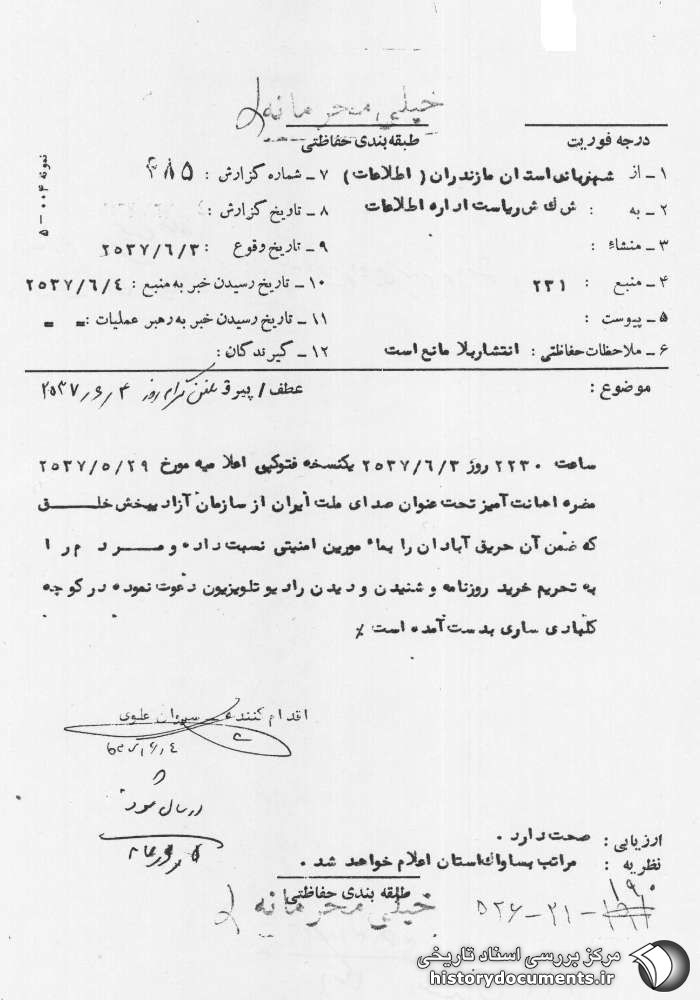 خیلی محرمانه
درجه فوریت
طبقه‌بندی حفاظتی
نمونه ۰۰۴ - ۵
۱ ـ از شهربانی استان مازندران (اطلاعات)
۲ ـ به : ش ک ش ریاست اداره اطلاعات
۳ ـ منشاء :
۴ ـ منبع : ۲۳۱
۵ ـ پیوست :
۶ ـ ملاحظات حفاظتی : انتشار بلا مانع است
۷ ـ شماره گزارش : ۴۸۵
۸ ـ تاریخ گزارش :
۹ ـ تاریخ وقوع : ۲۵۳۷/۶/۳
۱۰ ـ تاریخ رسیدن خبر به منبع : ۲۵۳۷/۶/۴
۱۱ ـ تاریخ رسیدن خبر به رهبر عملیات : - -
۱۲ ـ گیرندگان :
موضوع : عطف / پیرو تلفن‌گرام روز ۲۵۳۷/۶/۴
ساعت ۲۲۳۰ روز ۲۵۳۷/۶/۳ یکنسخه فتوکپی اعلامیه مورخ ۲۵۳۷/۵/۲۹
مضره اهانت آمیز تحت عنوان صدای ملت ایران از سازمان آزادیبخش خلق
که ضمن آن حریق آبادان را بمامورین امنیتی نسبت داده و مردم را
به تحریم خرید روزنامه و شنیدن و دیدن رادیو تلویزیون دعوت نموده در کوچه
کلبادی ساری بدست آمده است ٪
اقدام کننده علوی
ارسال شود
ارزیابی : صحت دارد .
نظریه : مراتب بساواک استان اعلام خواهد شد .
طبقه بندی حفاظتی
خیلی محرمانه
۱۹۰
۵۲۶-۲۱-
مرکز بررسی اسناد تاریخی
historydocuments.ir